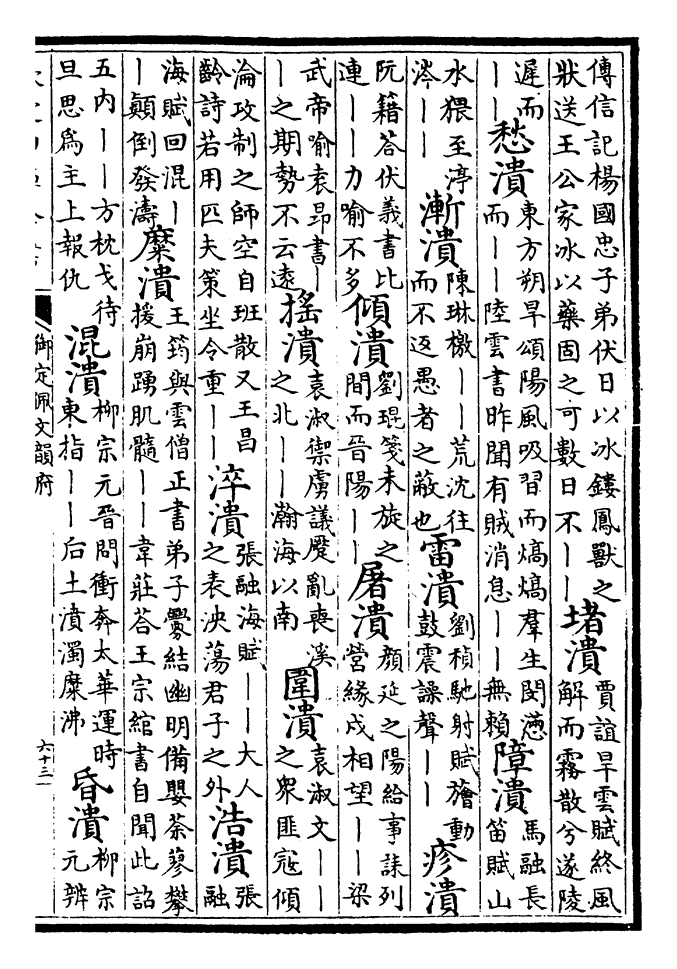 傳信記楊國忠子弟伏日以冰鏤鳳獸之狀送王公家冰以藥固之可數日不丨丨堵潰賈誼旱雲賦終風解而霧散兮遂陵
遲而丨丨愁潰東方朔旱頌陽風吸習而熇熇羣生閔懣而丨丨陸雲書昨聞有賊消息丨丨無賴障潰馬融長笛賦山
水猥至渟涔丨丨漸潰陳琳檄丨丨荒沈往而不返愚者之蔽也雷潰劉楨馳射賦旝動鼓震譟聲丨丨疹潰
阮籍荅伏義書比連丨丨力喻不多傾潰劉琨箋未旋之間而晉陽丨丨屠潰顔延之陽給事誄列營緣戍相望丨丨梁
武帝喻袁昂書丨丨之期勢不云遠搖潰袁淑禦虜議蹙亂喪溪之北丨丨瀚海以南圍潰袁淑文丨丨之衆匪寇傾
淪攻制之師空自班散又王昌齡詩若用匹夫策坐令重丨丨淬潰張融海賦丨丨大人之表泱蕩君子之外浩潰張融
海賦回混丨丨顛倒發濤糜潰王筠與雲僧正書弟子釁結幽明備嬰荼蓼攀援崩踴肌髓丨丨韋莊荅王宗綰書自聞此詔
五内丨丨方枕戈待旦思爲主上報仇混潰柳宗元晉問衝奔太華運時東指丨丨后土濆濁糜沸昏潰柳宗元辨
御定佩文韻府
六十三